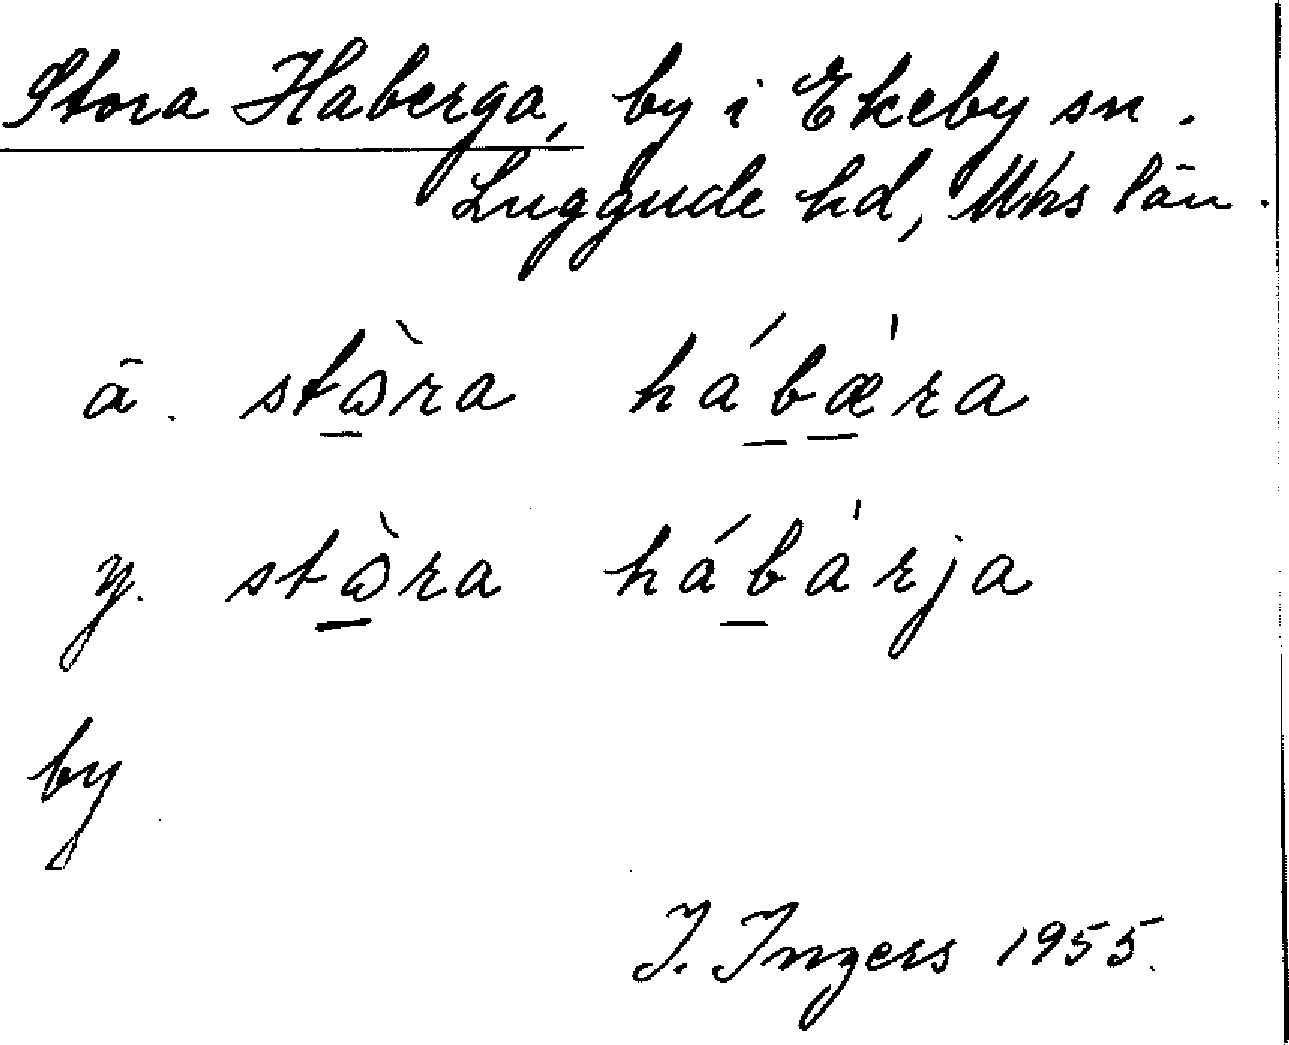 Stora Haberga, by i Ekeby sn.
Luggude hd, Mhs län.
ä. stɷ̀ra hábæ̀ra
y. stɷ̀ra hábàrja
by
I. Ingers 1955.